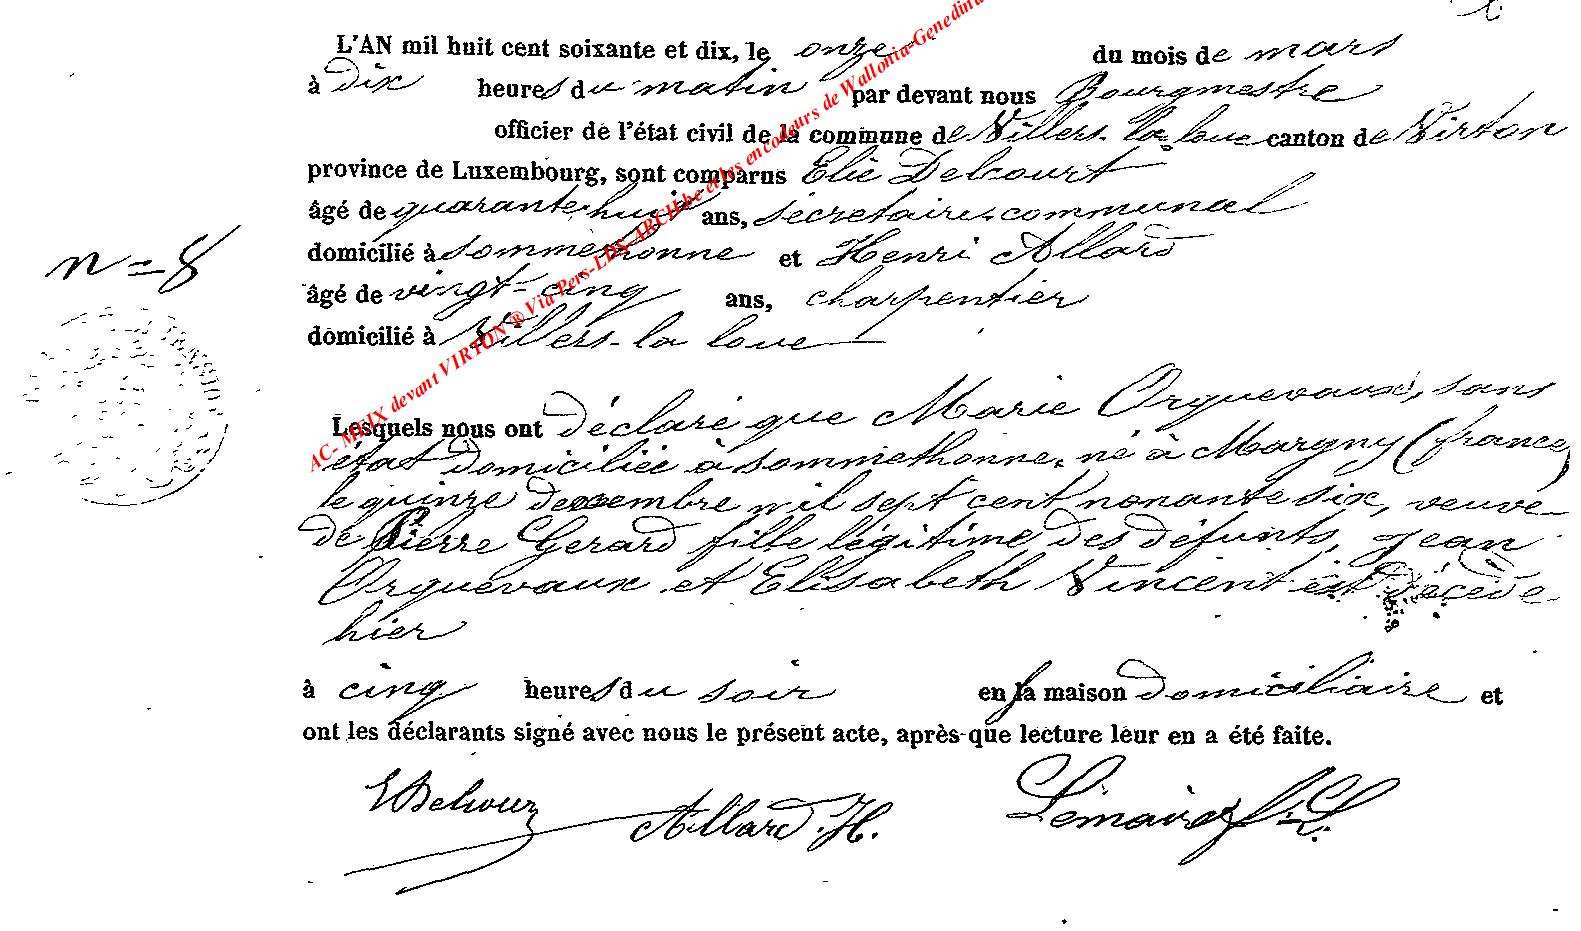 L'AN mil huit cent soixante et dix, le onze du mois de mars
à dix heures du matin par devant nous Bourgmestre
officier de l'état civil de la commune de Villers-la-loue canton de Virton
province de Luxembourg, sont comparus Elie Delcourt
âgé de quarante-huit ans, secrétaire communal
domicilié à sommethonne et Henri Allard
n=8
âgé de vingt-cinq ans, charpentier
domicilié à Villers-la loue
AC- MEIX devant VIRTON ® Via Pers-LDS-ARCH.be et les encodeurs de Wallonia-Genedina
Lesquels nous ont déclaré que Marie Orquevaux, sans
état domiciliée à sommethonne, né à Margny (france)
le quinze décembre mil sept cent nonante six, veuve
de Pierre Gerard fille légitime des défunts, Jean
Orquevaux et Elisabeth Vincent est décédé
hier
à cinq heures du soir en la maison domiciliaire et
ont les déclarants signé avec nous le présent acte, après que lecture leur en a été faite.
EDelcour Allard.H.